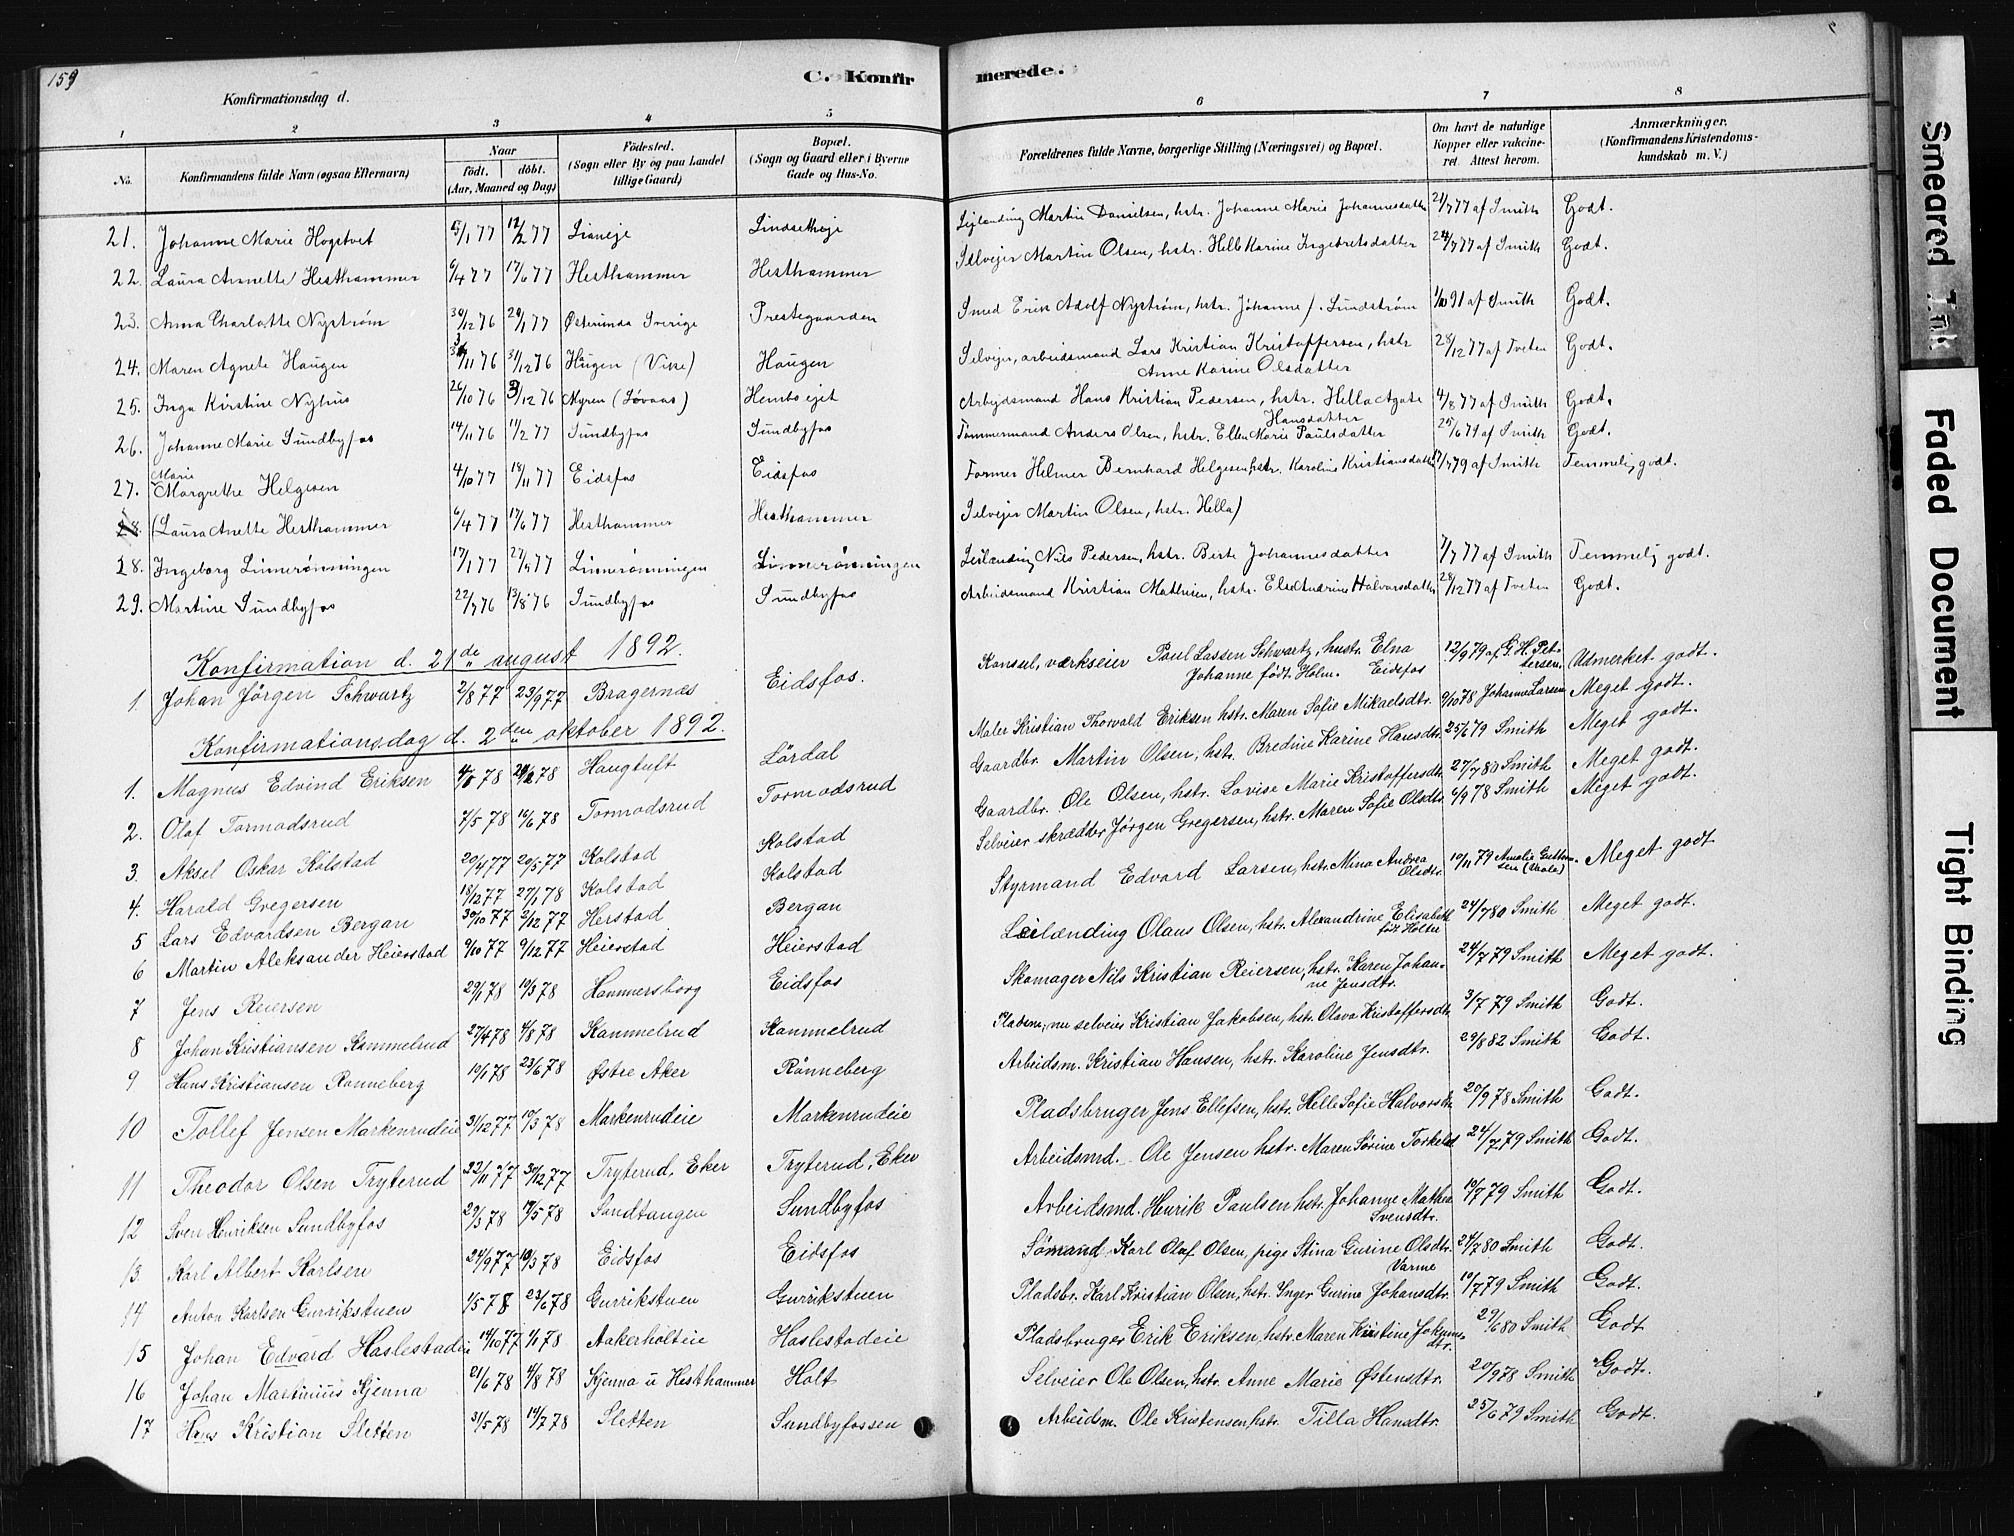 159
C. Konfirmerede.
Konfirmationsdag d.
1 2 3 4 5 6 7 8
No. Konfirmandens fulde Navn (ogsaa Efternavn) Naar født. døbt. (Aar, Maaned og Dag) Fødested. (Sogn eller By og paa Landet tillige Gaard) Bopæl. (Sogn og Gaard eller i Byerne Gade og Hus-No. Forældrenes fulde Navne, borgerlige Stilling (Næringsvei) og Bopæl. Om havt de naturlige Kopper eller vakcineret. Attest herom. Anmærkninger. (Konfirmandens Kristendomskundskab m. V.)
21. Johanne Marie Hogstvet 5/1 77 12/2 77 Lianeje Martin Danielsen, hstr. Johanne Marie Johannesdatter 2/7 77 af Smith Godt.
22. Laura Annette Hesthammer 6/4 77 17/6 77 Hesthammer Hesthammer Selvejer Martin Olsen, hstr. Helle Karine Ingebretsdatter 24/7 77 af Smith Godt.
23. Anna Charlotte Nystrøm 30/12 76 29/1 77 Østerunda Sverige Prestegaarden Smed Erik Adolf Nystrøm, hstr. Johanne f. Lundstrøm 1/10 91 af Smith Godt.
24. Maren Agnete Haugen 11 76 31/12 76 Haugen (Vike) Haugen Selvejer, arbeidsmand Lars Kristian Kristoffersen, hstr Anne Karine Olsdatter 28/12 77 af Tveten Godt.
25. Inga Kirstine Nyhus 26/10 76 3/12 76 Myren (Løvaas) Arbejdsmand Hans Kristian Pedersen, hstr. Hella Agate Hansdatter 4/8 77 af Smith Godt.
26. Johanne Marie Sundbyfos 14/11 76 11/2 77 Sundbyfos Sundbyfos Tømmermand Anders Olsen, hstr. Ellen Marie Paulsdatter 25/6 79 af Smith Godt.
27. Marie Margrethe Helgesen 4/10 77 18/11 77 Eidsfos Eidsfos Former Helmer Bernhard Helgesen, hstr. Karoline Kristiansdatter /7 79 af Smith Temmelig godt.
28. (Laura Anette Hesthammer 6/4 77 17/6 77 Hesthammer Hesthammer Selvejer Martin Olsen, hstr. Hella)
28. Ingeborg Linnerønningen 17/1 77 77 Linnerønningen Linnerønningen Leilænding Nils Pedersen, hstr. Berte Johannesdatter 7/7 77 af Smith Temmelig godt.
29. Martine Sundbyfos 22/7 76 13/8 76 Sundbyfos Sundbyfos Arbeidsmand Kristian Mathisen, hstr. Else Andrine Halvorsdatter 28/12 77 af Tveten Godt.
Konfirmation d. 21de august 1892.
1. Johan Jörgen Schwartz 2/8 77 23/9 77 Bragernæs Eidsfos. Konsul, værkseier Paul Lassen Schwartz, hustr. Elna Johanne født Holm. Eidsfos 12/9 79 af G. H. Petersen. Udmerket godt.
Konfirmationsdag d. 2den oktober 1892.
1. Magnus Edvind Eriksen 78 78 Haugtuft Lördal Maler Kristian Thorvald Eriksen hstr. Maren Sofie Mikaelsdtr. 9/10 78 Johanne Larsen Meget godt.
2. Olaf Tormodsrud 7/5 78 16/6 78 Tormodsrud Tormodsrud Gaardbr. Martin Olsen, hstr. Bredine Karine Hansdtr. 25/6 79 Smith Meget godt.
3. Aksel Oskar Kolstad 20/4 77 20/5 77 Kolstad Kolstad Gaardbr. Ole Olsen, hstr. Lovise Marie Kristoffersdtr. 27/7 80 Smith Meget godt.
4. Harald Gregersen 18/12 77 27/1 78 Kolstad Kolstad Selveier skrædder Jörgen Gregersen, hstr. Maren Sofie Olsdtr. 6/9 78 Smith Meget godt.
5 Lars Edvardsen Bergan 30/10 77 2/12 77 Herstad Bergan Styrmand Edvard Larsen, hstr. Mina Andrea Olsdtr. 10/11 79 Amalie Guttormsen (Vaale) Meget godt
6 Martin Aleksander Heierstad 9/10 77 9/12 77 Heierstad Heierstad Leilænding Olaus Olsen, hstr. Alexandrine Elisabeth født Holter 24/7 80 Smith Meget godt.
7 Jens Reiersen 29/1 78 10/3 78 Hammersborg Eidsfos Skomager Nils Kristian Reiersen, hstr. Karen Johanne Jensdtr. 24/7 79 Smith Meget godt.
8 Johan Kristiansen Kammelrud 27/4 78 4/8 78 Kammelrud Kammelrud Pladsm., nu selveier Kristian Jakobsen, hstr. Olava Kristoffersdtr. 3/7 79 Smith Godt.
9 Hans Kristiansen Rønneberg 10/1 78 23/6 78 Østre Aker Rønneberg Arbeidsm. Kristian Hansen, hstr. Karoline Jensdtr. 29/8 82 Smith Godt.
10 Tollef Jensen Markenrudeie 31/12 77 10/3 78 Markenrudeie Markenrudeie Pladsbruger Jens Ellefsen, hstr. Helle Sofie Halvorsdtr. 20/9 78 Smith Godt.
11 Theodor Olsen Tryterud 22/11 77 30/12 77 Tryterud, Eker Tryterud, Eker Arbeidsmd. Ole Jensen hstr. Maren Sörine Torkelsd 24/7 79 Smith Godt.
12 Sven Henriksen Sundbyfos 27/3 78 19/5 78 Sandtangen Sundbyfos Arbeidsmd. Henrik Paulsen hstr. Johanne Mathea Svensdtr. 10/7 79 Smith Godt.
13. Karl Albert Karlsen 24/9 77 10/3 78 Eidsfos Eidsfos Sömand Karl Olaf Olsen, pige Stina Gurine Olsdtr. Varme 24/7 80 Smith Godt.
14 Anton Karlsen Gurrikstuen 1/5 78 23/6 78 Gurrikstuen Gurrikstuen Pladsbr. Karl Kristian Olsen, hstr. Inger Gurine Johansdtr. 10/7 79 Smith Godt.
15 Johan Edvard Haslestadeie 14/10 77 1/1 78 Aakerholteie Haslestadeie Pladsbruger Erik Eriksen, hstr. Maren Kristine 29/6 80 Smith Godt
16 Johan Martinius Kjenna 21/6 78 4/8 78 Kjenna u Hesthammer Holt Selveier Ole Olsen, hstr. Anne Marie Østensdtr. 20/9 78 Smith Godt.
17 Hans Kristian Sletten 31/5 78 14/7 78 Sletten Sundbyfossen Arbeidsm. Ole Kristensen, hstr. Tilla Hansdtr. 25/6 79 Smith Godt.
Smeared Ink
Faded Document
Tight Binding